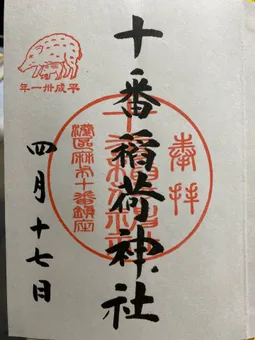 奉拝
十番稲荷神社
港區麻布十番鎮座
平成卅一年
四月十七日